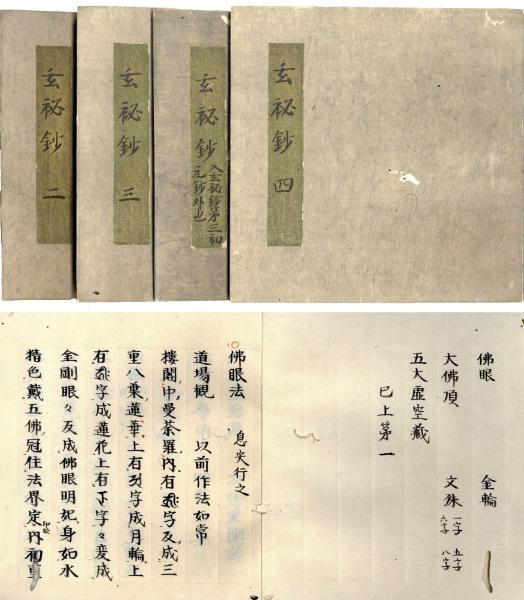 玄祕鈔 二
玄祕鈔 三
玄祕鈔
入玄祕鈔第三初
元鈔外也
玄祕鈔 四
佛眼 金輪
大佛頂 文殊 一字 五字
六字 八字
五大虚空藏
已上第一
佛眼法 息災行之
道場觀 以前作法如常
樓閣中曼荼羅内有字反成三
重八葉蓮華上有字成月輪上
有字成蓮花上有字々変成
金剛眼々反成佛眼明妃身如水
精色戴五佛冠住法界定印内初重